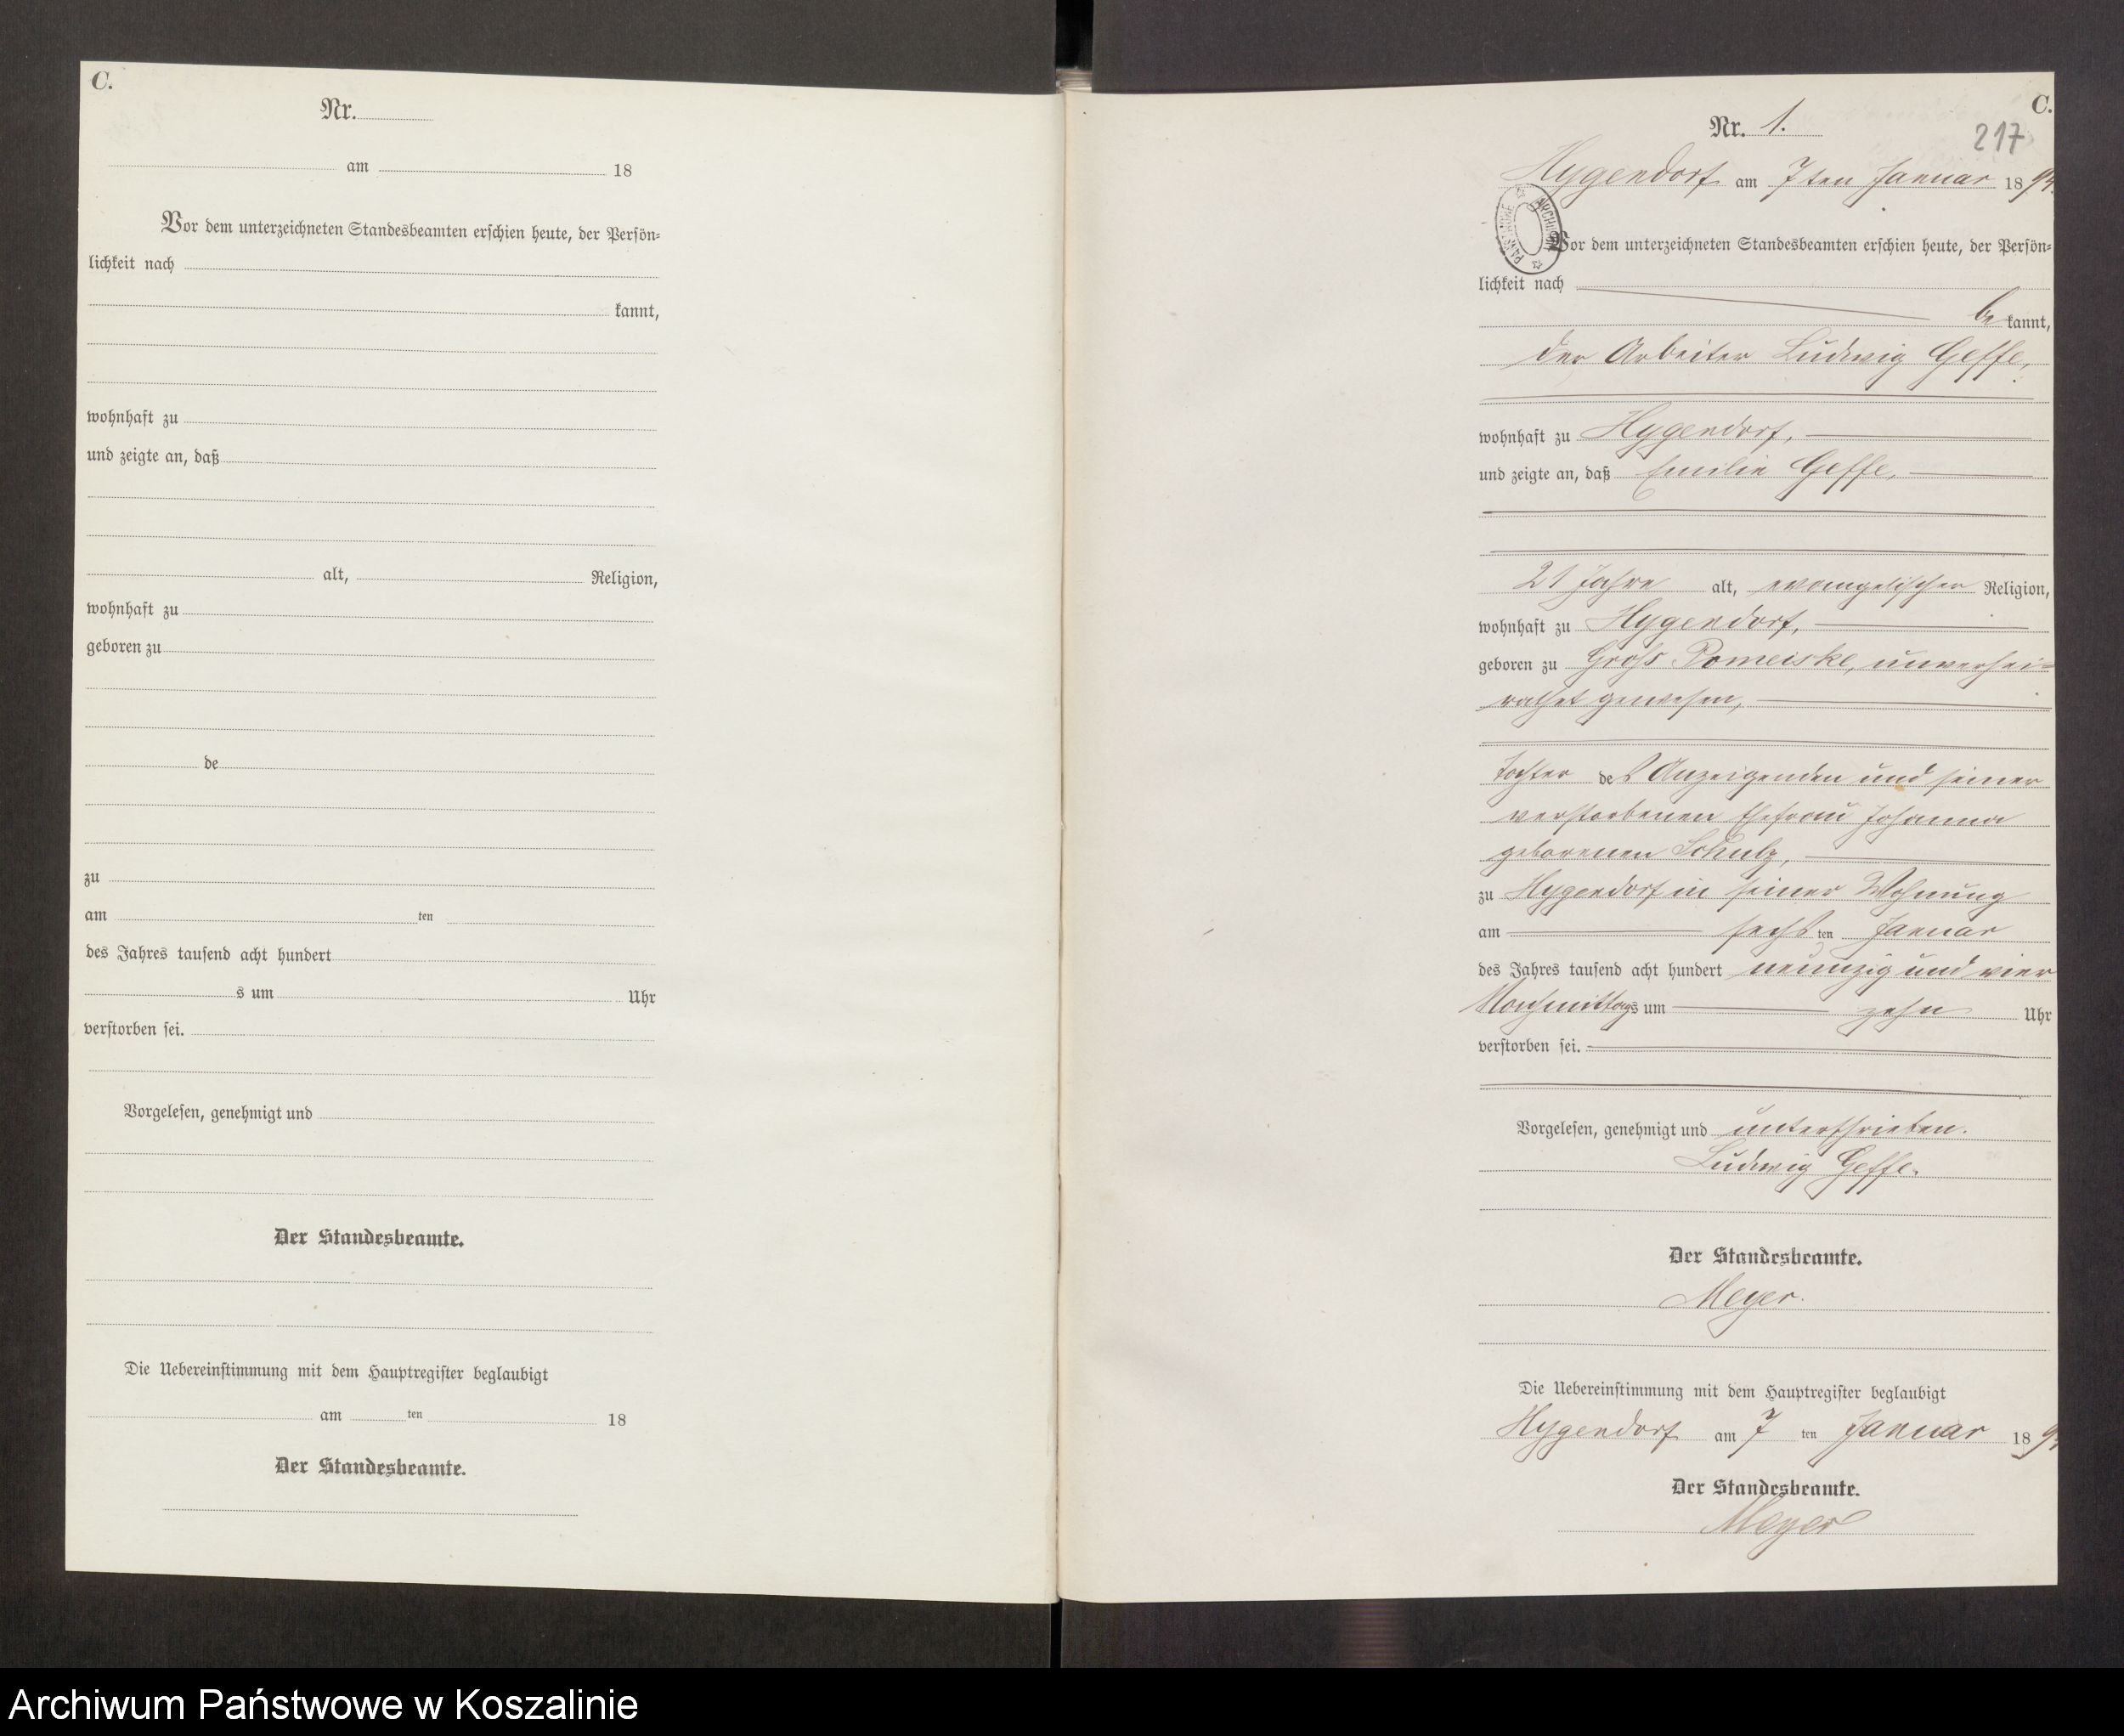 C.
Nr.
am 18
Vor dem unterzeichneten Standesbeamten erschien heute, der Persön=
lichkeit nach
kannt,
wohnhaft zu
und zeigte an, daß
alt, Religion,
wohnhaft zu
geboren zu
de
zu
am ten
des Jahres tausend acht hundert
s um Uhr
verstorben sei.
Vorgelesen, genehmigt und
Der Standesbeamte.
Die Uebereinstimmung mit dem Hauptregister beglaubigt
am ten 18
Der Standesbeamte.
C.
Nr. 1.
217
Hygendorf am 7ten Januar 1894.
Vor dem unterzeichneten Standesbeamten erschien heute, der Persön=
lichkeit nach
be kannt,
der Arbeiter Ludwig Geffe,
wohnhaft zu Hygendorf,
und zeigte an, daß Emilie Geffe,
21 Jahre alt, evangelischer Religion,
wohnhaft zu Hygendorf,
geboren zu Groß Pomeiske, unverhei=
rathet gewesen,
Tochter des Anzeigenden und seiner
verstorbenen Ehefrau Johanna
geborenen Schulz,
zu Hygendorf in seiner Wohnung
am sechsten Januar
des Jahres tausend acht hundert neunzig und vier
Nachmittags um zehn Uhr
verstorben sei.
Vorgelesen, genehmigt und unterschrieben.
Ludwig Geffe.
Der Standesbeamte.
Meyer.
Die Uebereinstimmung mit dem Hauptregister beglaubigt
Hygendorf am 7 ten Januar 189
Der Standesbeamte.
Meyer
Archiwum Państwowe w Koszalinie